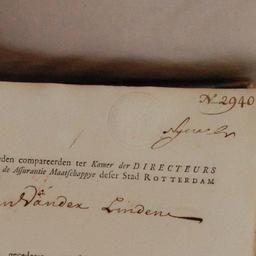 N 2940
eden compareerden ter Kamer der DIRECTEURS
de Assurantie Maatschappye deser Stad ROTTERDAM
Van der Linden